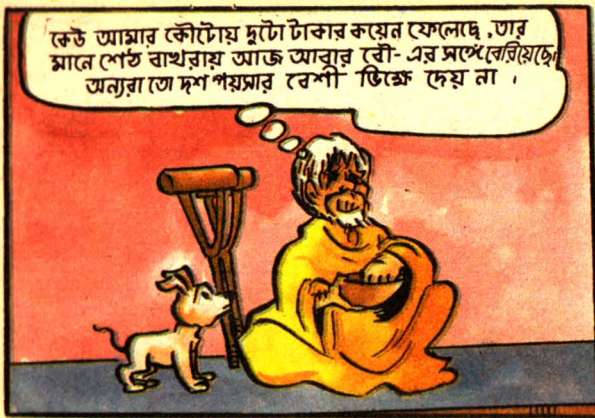 কেউ আমার কৌটোয় দুটো টাকার কয়েন ফেলেছে, তার
মানে শেঠ বাখরায় আজ আবার বৌ-এর সঙ্গে বেরিয়েছে।
অন্যরা তো দশ পয়সার বেশী ভিক্ষে দেয় না।